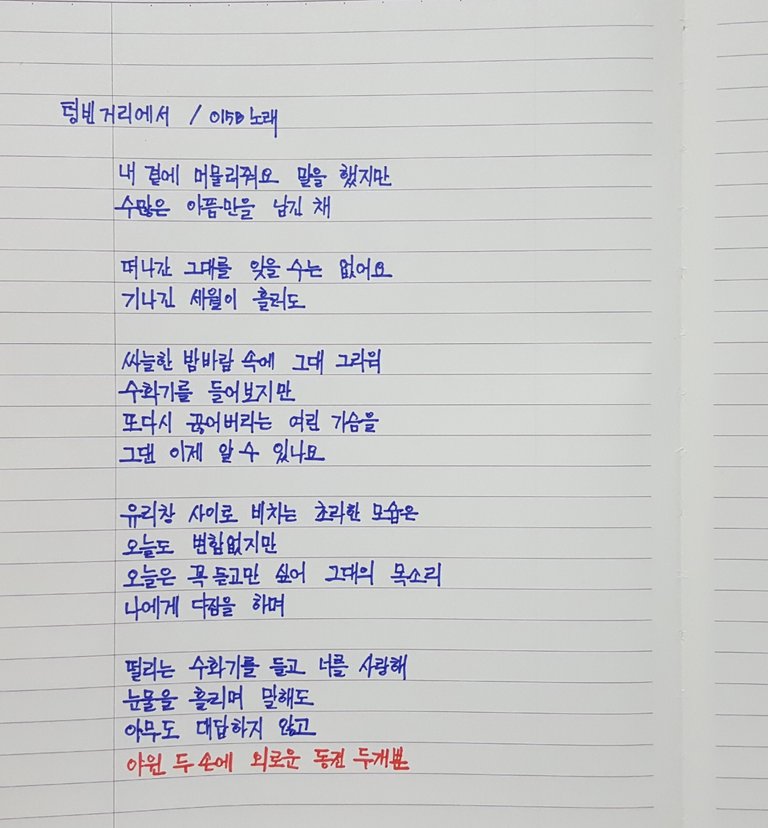 텅빈거리에서 / 015B 노래
내 곁에 머물러줘요 말을 했지만
수많은 아픔만을 남긴 채
떠나간 그대를 잊을 수는 없어요
기나긴 세월이 흘러도
싸늘한 밤바람 속에 그대 그리워
수화기를 들어보지만
또다시 끊어버리는 여린 가슴을
그댄 이제 알 수 있나요
유리창 사이로 비치는 초라한 모습은
오늘도 변함없지만
오늘은 꼭 듣고만 싶어 그대의 목소리
나에게 다짐을 하며
떨리는 수화기를 들고 너를 사랑해
눈물을 흘리며 말해도
아무도 대답하지 않고
야윈 두 손에 외로운 동전 두개뿐